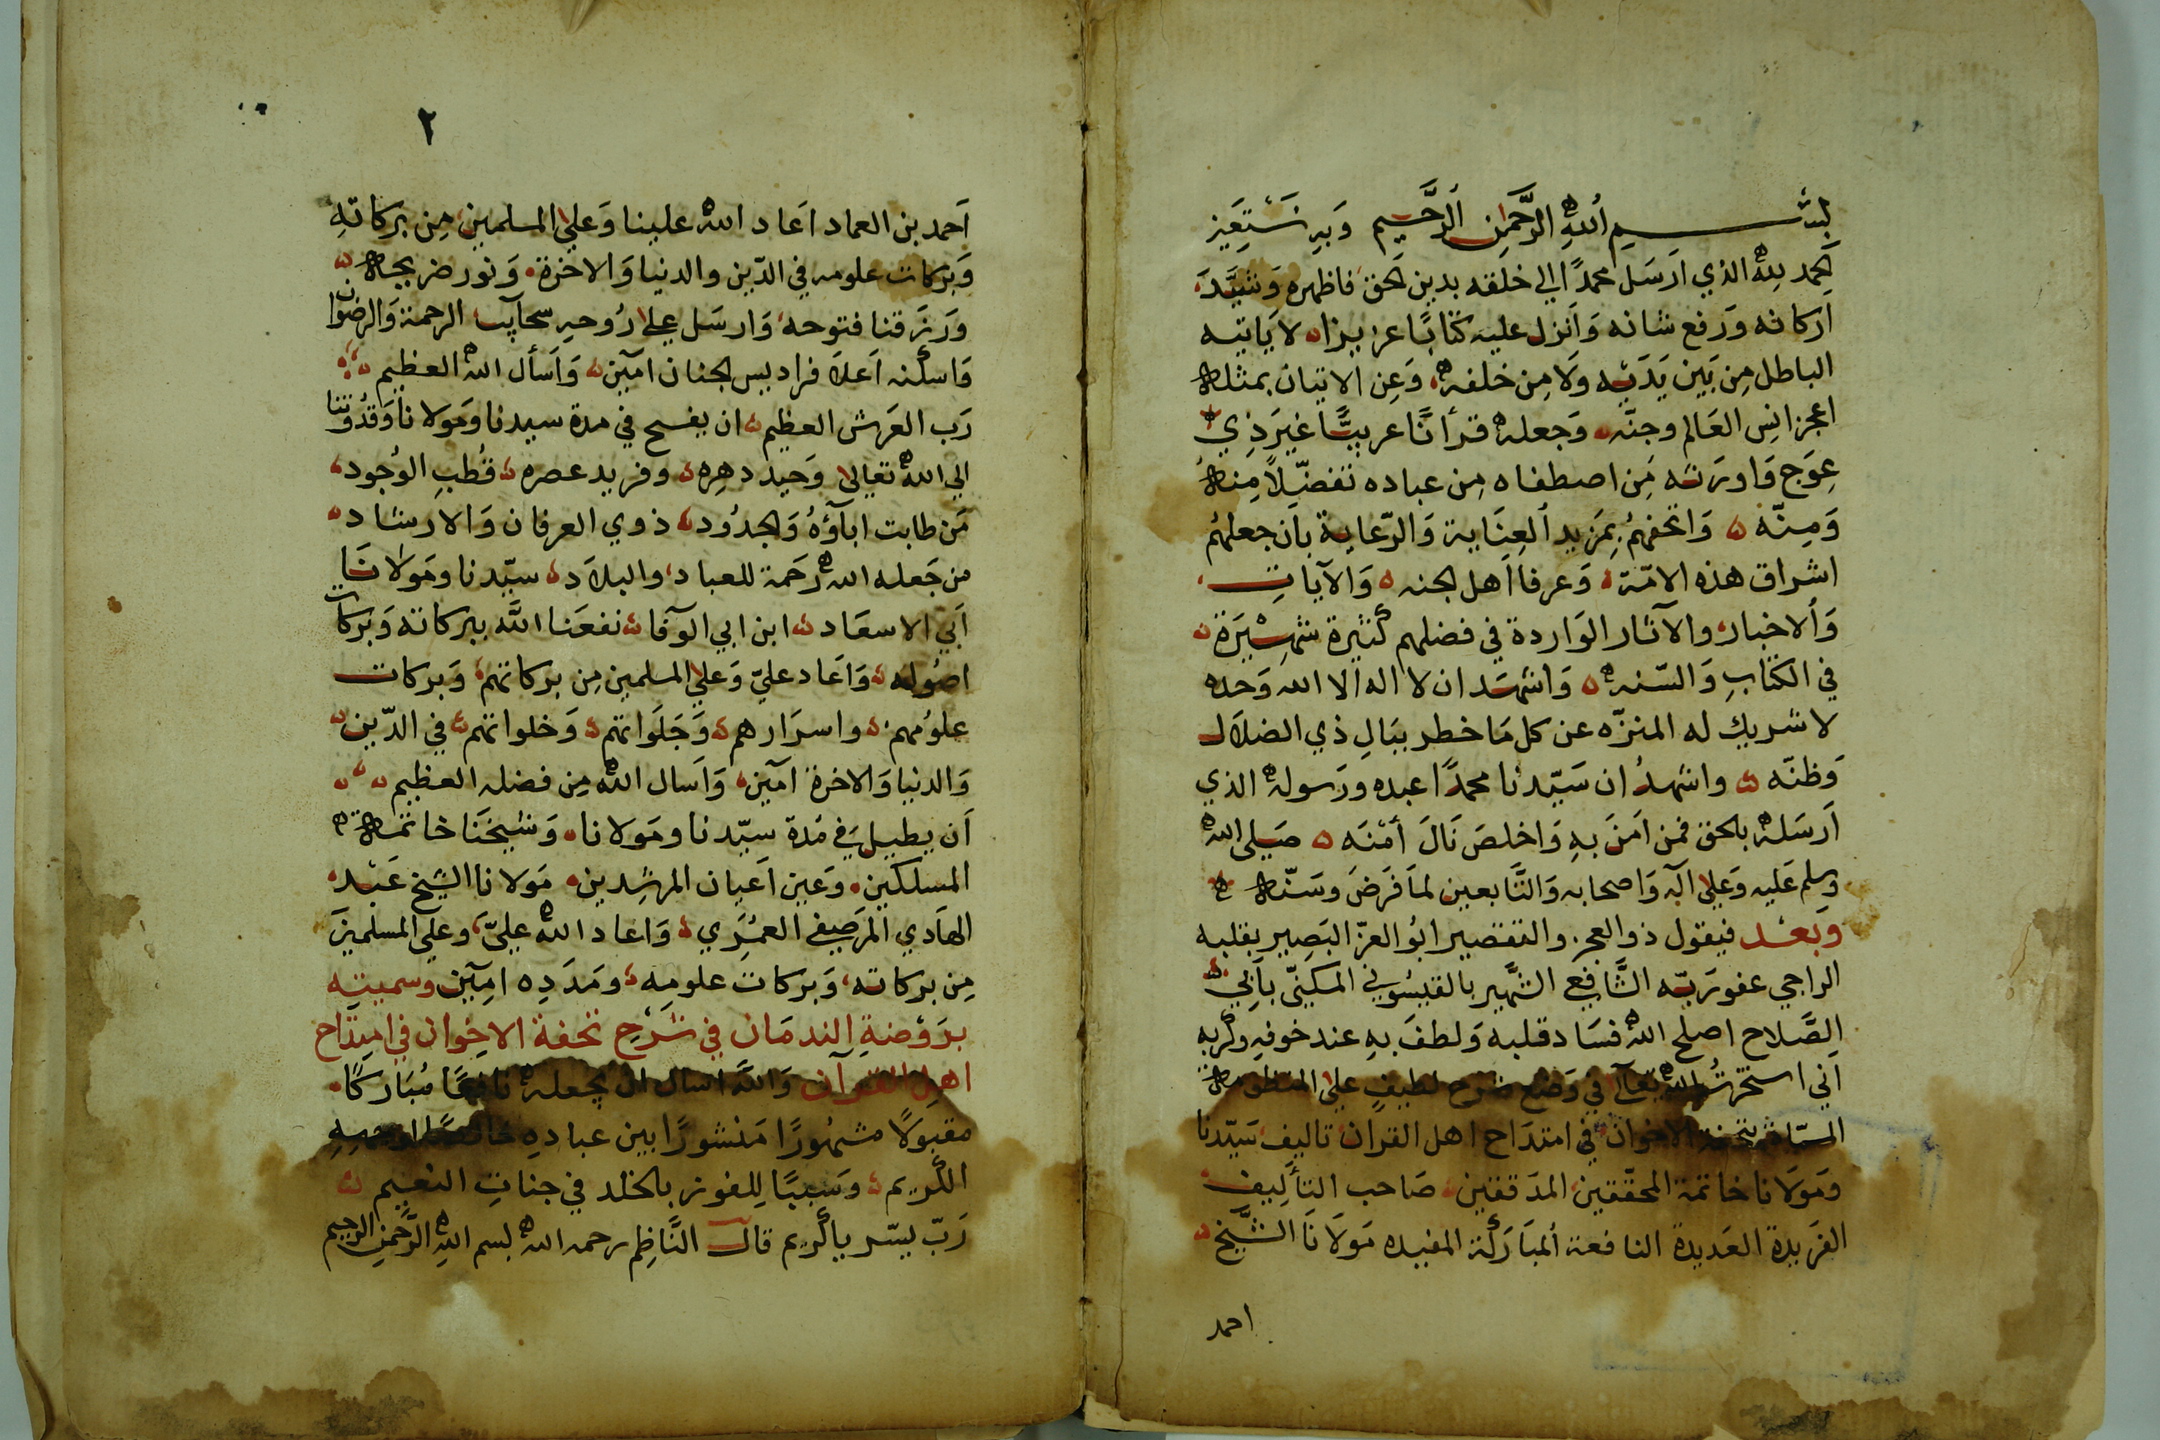 بسم اللهِ الرَّحمنِ الرَّحيم وَبهِ نَسْتَعِين
الحمد لله الذي ارَسَل محمدًا الي خلقه بدين الحق فاظهره وَشَيَّدَ
اركانه وَرَفع شانه وَاَنزل عليه كتابًا عزيزا لا يَاتيه
الباطل مِن بَين يَدَيْه ولَا مِن خلفه وَعن الاتيان بمثله
اعجز انسِ العَالم وجنّه وَجعله قرأنًا عربيًّا غيرَ ذِي
عِوَج وَاورَثه مَن اصطفاه مِن عباده تفضّيلاً مِنه
وَمِنّه وَاتحفهمُ بِمَزيد العِنَاية وَالرّعاية بان جعلهمُ
اشراق هذه الامّة وَعرفا اَهل الجنه وَالآيات
وَالاخبار والآثار الوَاردة في فضلهم كثيرة شهِيْرَة
في الكتابِ وَالسّنه وَاشهَد ان لا اله الا الله وَحده
لا شريك له المنزّه عن كل مَا خطر ببَالِ ذي الضلاَل
وَظنّه واشهدُ ان سَيّدنا محمدًا عبده ورَسوله الذي
اَرسَله بالحق فمن اَمنَ بهِ وَاخلصَ نَالَ اَمْنَه صَلي الله
وَسلم عَليه وَعلي آله وَاصحابه وَالتَّابعين لمَا فَرَضَ وسَنّه
وبَعْد فيقول ذو العجز والتقصير ابُو العزّ البَصِير بقلبه
الراجي عفو رَبّه الشَّافعي الشَّهير بالقيسُوني المكنّي بأبي
الصَّلاح اصلح الله فسَاد قلبه وَلطفَ بهِ عند خوفهِ وكربه
اني استخرتُ الله تعَالي في وَضع شرح لطيف علي المنظومة
السمّاة بتحفة الاخوان في امتدَاح اهل القران تاليف سَيّدنا
ومَولانا خاتمة المحقّقين المدَققين صَاحب التأليف
الفَريدة العَديدة النافعة المبَاركة المفيده مَولَانَا الشَّيخ
احمد
٢
اَحمد بن العماد اعَاد الله علينا وَعلي المسلمين مِن بركاتهِ
وَبَركات علومه في الدّين والدنيا وَالاخرة وَنور ضريحه
ورَزَقنا فتوحه وَارسَل علي رُوحهِ سحايب الرحمة وَالرضوان
وَاسكنه اَعلاَ فراديس الجنان امَين وَاَسأل الله العظيم
رَب العَرش العظيم ان يفسح في مدة سيدنا وَمَولانا وَقدُوتنا
الي الله تعَالي وَحيد دهرِه وفريد عصره قُطبِ الوُجود
مَن طابت اباَؤهُ وَالجدُود ذوي العرفان وَالارشاد
من جَعله الله رَحَمة للعباد والبلاَد سيّدنا ومَولانَا
اَبي الاسعَاد ابن ابي الوَفا نفعَنا اللَّه ببركاته وَبَركات
اصُوله وَاعَاد عليّ وَعلي المسلمين مِن بركاتهم وَبَركات
علوُمهم واسرَارهم وَجَلَواتهم وَخلواتهم في الدّين
وَالدنيا وَالاخرة امَين وَاَسال الله مِن فضله العظيم
اَن يطيل في مَدة سيّدنا ومَولانا وَشيخَنا خاتمة
المسلكين وَعين اَعيان المرشِدين مَولانا الشيخ عَبْد
الهَادي المَرَصِفي العمُرَي وَاعاد الله عليّ وعلي المسلمينَ
مِن بركاته وَبَركات علومِه ومَدَدِه امِيَن وسميته
برَوْضةِ الندمَان في شَرْحِ تحفة الاخوان في امتِدَاح
اهلِ القرآن وَاللَّهَ اسال ان يجعله نافعًا مُبَاركًا
مقبولاً مشهُورًا مَنشورًا بين عبادهِ خالصًا لوجههِ
الكَريم وسَببًا لِلفوز بالخلد في جناتِ النعَيم
رَبّ يسّر ياكريم قال النَّاظِم رحمه الله بسم اللهِ الرَّحمنِ الرحيم